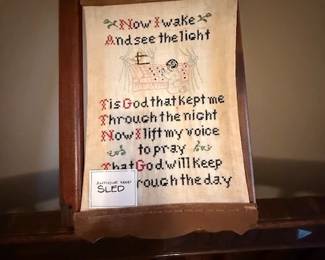 Now I wake
And see the light
Tis God that kept me
Through the night
Now I lift my voice
to pray
That God will keep
rough the day
SLED